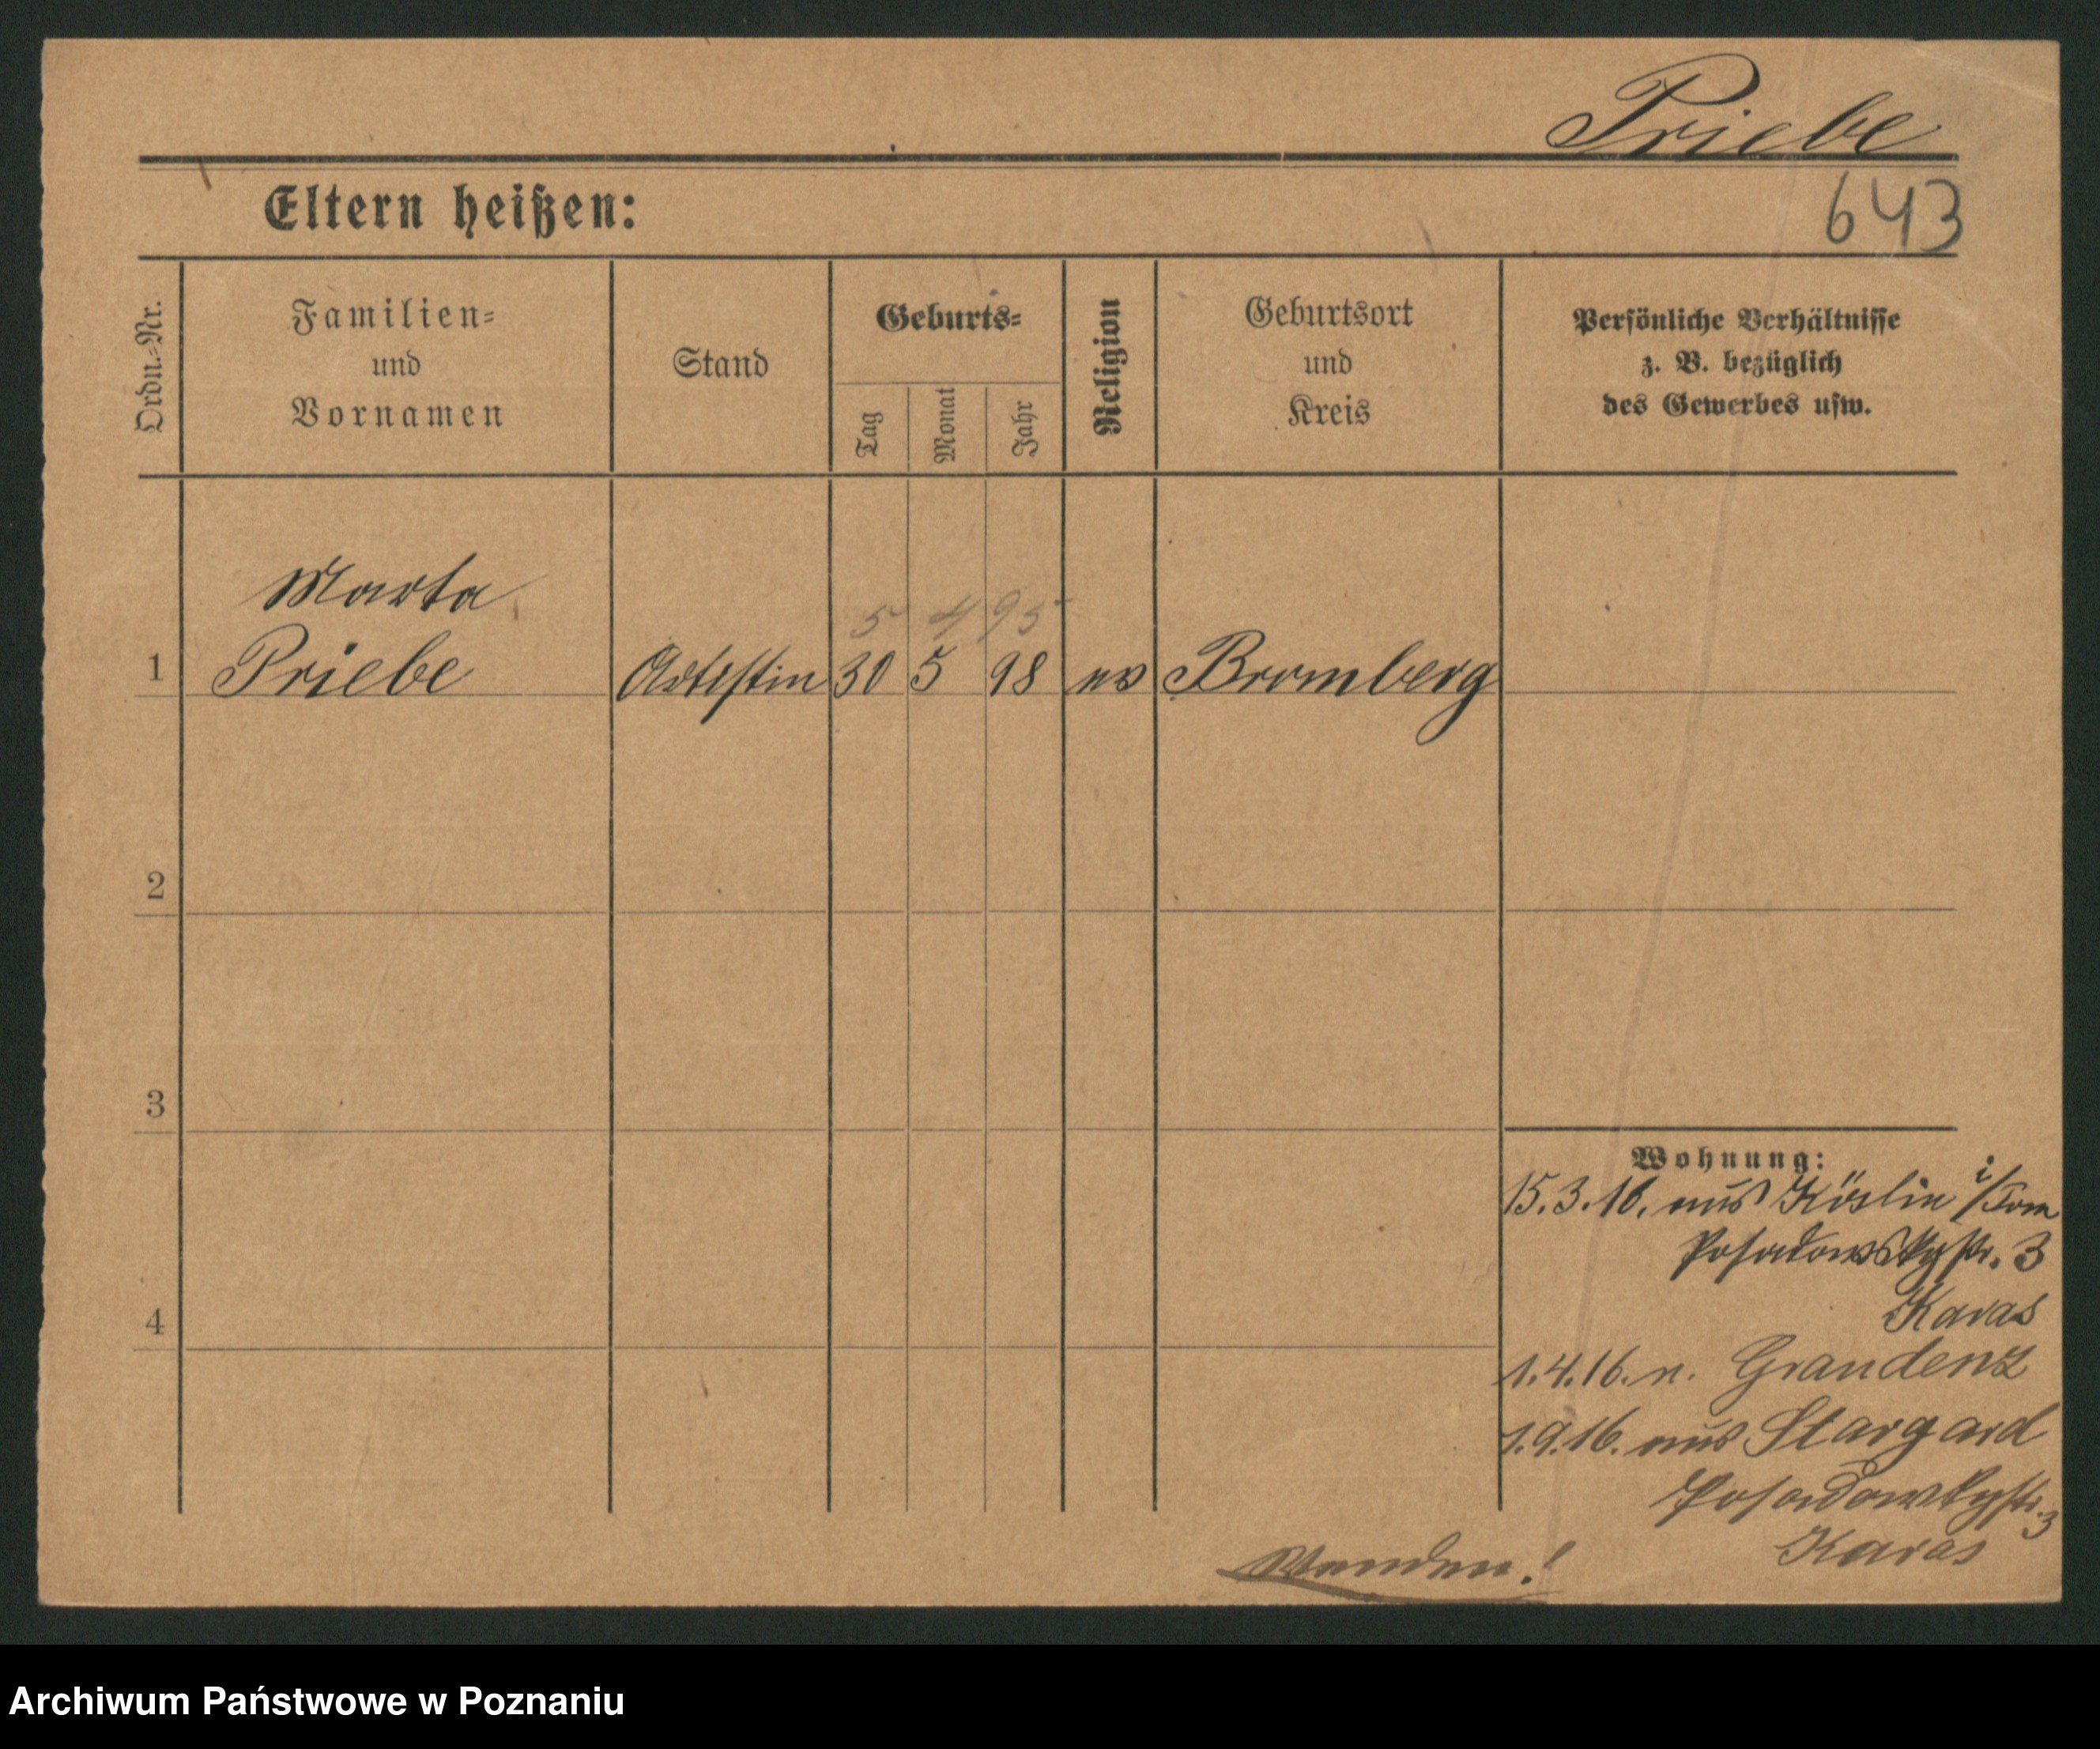 Priebe
643
Eltern heißen:
Ordn.-Nr.
Familien-
und
Vornamen
Stand
Geburts-
Tag
Monat
Jahr
Religion
Geburtsort
und
Kreis
Persönliche Verhältnisse
z. B. bezüglich
des Gewerbes usw.
Marta
5 4 95
1 Priebe Artistin 30 5 98 ev Bromberg
2
3
4
Wohnung:
15.3.16. aus Köslin i/Pom
Posadowskystr. 3
Karas
1.4.16. n. Graudenz
1.9.16. aus Stargard
Posadowkystr. 3
Karas
Wenden!
Archiwum Państwowe w Poznaniu